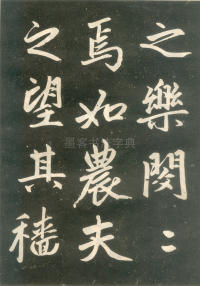 之樂閔〻
焉如農夫
之望其穡
墨客书法字典